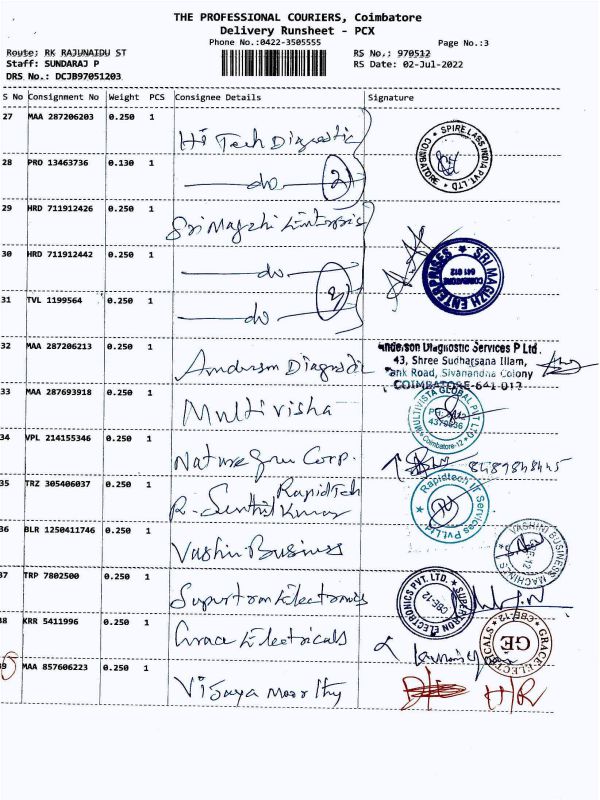 THE PROFESSIONAL COURIERS, Coimbatore
Delivery Runsheet - PCX
Phone No.:0422-3505555
Page No.:3
Route; RK RAJUNAIDU ST
RS No.; 970512
Staff: SUNDARAJ P
RS Date: 02-Jul-2022
DRS No.: DCJB97051203
S No Consignment No Weight PCS Consignee Details Signature
27 MAA 287206203 0.250 1
Hi Tech Diagnostic
SPIRE LASS INDIA PVT. LTD COIMBATORE
28 PRO 13463736 0.130 1
do 2
29 HRD 711912426 0.250 1
Sri Magzhi Enterpris
30 HRD 711912442 0.250 1
do
SRI MAGIZH ENTERPRISES COIMBATORE 641 012
31 TVL 1199564 0.250 1
do 3
32 MAA 287206213 0.250 1
Anderson Diagnostic
Anderson Diagnostic Services P Ltd.
43, Shree Sudharsana Illam,
Tank Road, Sivanandha Colony
COIMBATORE-641 012
33 MAA 287693918 0.250 1
Multivisha
MULTIVISTA GLOBAL PVT LTD Coimbatore-12
34 VPL 214155346 0.250 1
Nature Corp.
35 TRZ 305406037 0.250 1
Rapid Tech
R. Senthil Kumar
Rapidtech Services Pvt.Ltd.
36 BLR 1250411746 0.250 1
Vashin Business
VASHINI BUSINESS MACHINES CBE-12
37 TRP 7802500 0.250 1
Supertron Electronics
SUPERTRON ELECTRONICS PVT. LTD. CBE-12
38 KRR 5411996 0.250 1
Grace Electricals
GRACE ELECTRICALS CBE-12 GE
39 MAA 857606223 0.250 1
Vijaya Moorthy
H/R